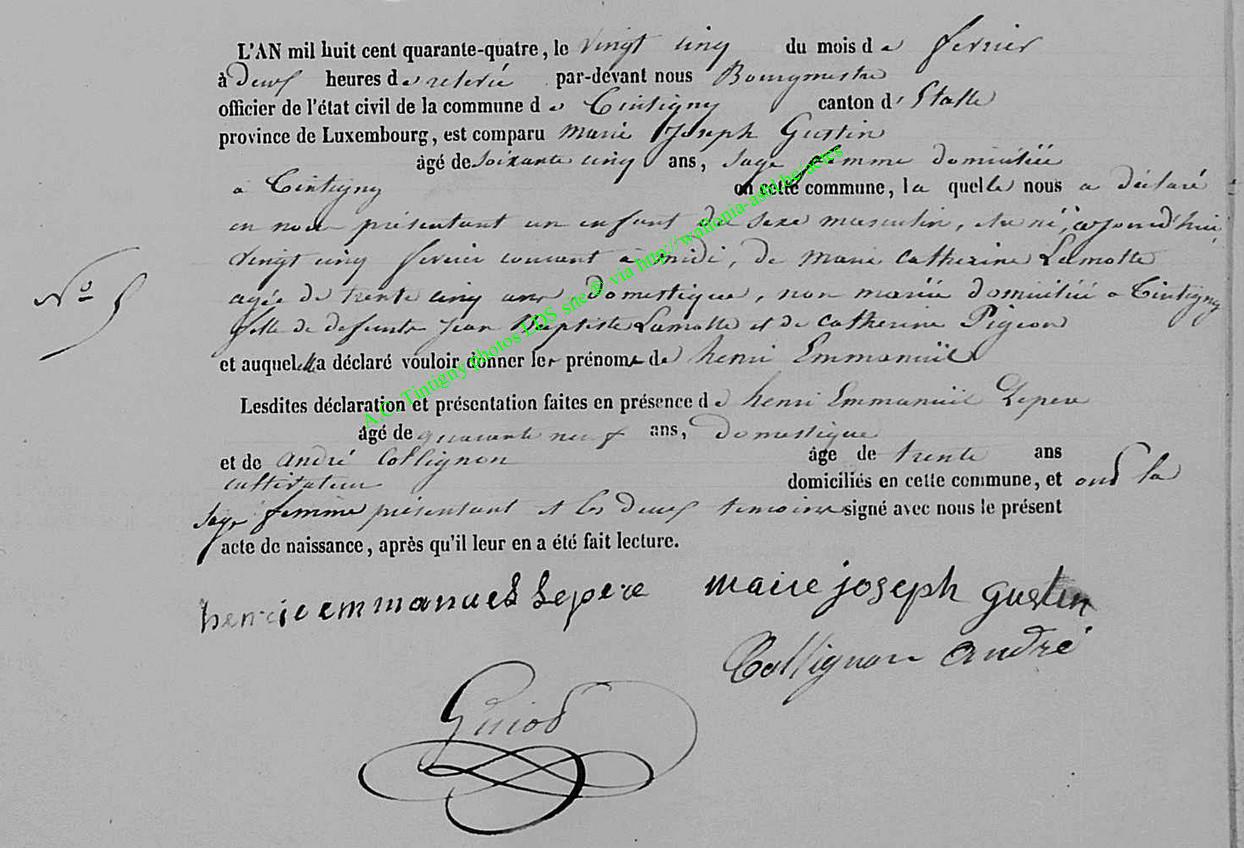 L'AN mil huit cent quarante-quatre, le vingt cinq du mois de fevrier
à deux heures de relevé par-devant nous Bourgmestre
officier de l'état civil de la commune de Tintigny canton d'Etalle
province de Luxembourg, est comparu Marie Joseph Gustin
âgé de soixante cinq ans, sage femme domiciliée
a Tintigny en cette commune, la quelle nous a déclaré
en nous présentant un enfant du sexe masculin, etre né aujourd'hui
vingt cinq fevrier courant a midi, de marie Catherine Lamotte
agée de trente cinq ans, domestique, non mariée domiciliée a Tintigny
fille de defunts Jean Baptiste Lamotte et de Catherine Pigeon
et auquel elle a déclaré vouloir donner les prénoms de henri Emmanuël
Lesdites déclaration et présentation faites en présence de henri Emmanuël Lepere
âgé de quarante neuf ans, domestique
et de andré Collignon âge de trente ans
cultivateur domiciliés en cette commune, et ont la
sage femme présentant et les deux temoins signé avec nous le présent
acte de naissance, après qu'il leur en a été fait lecture.
N° 5
henri emmanuel Lepere marie joseph gustin
Collignon andré
A.C. Tintigny photos LDS sne © via http://wallonia-asbl.be/actes